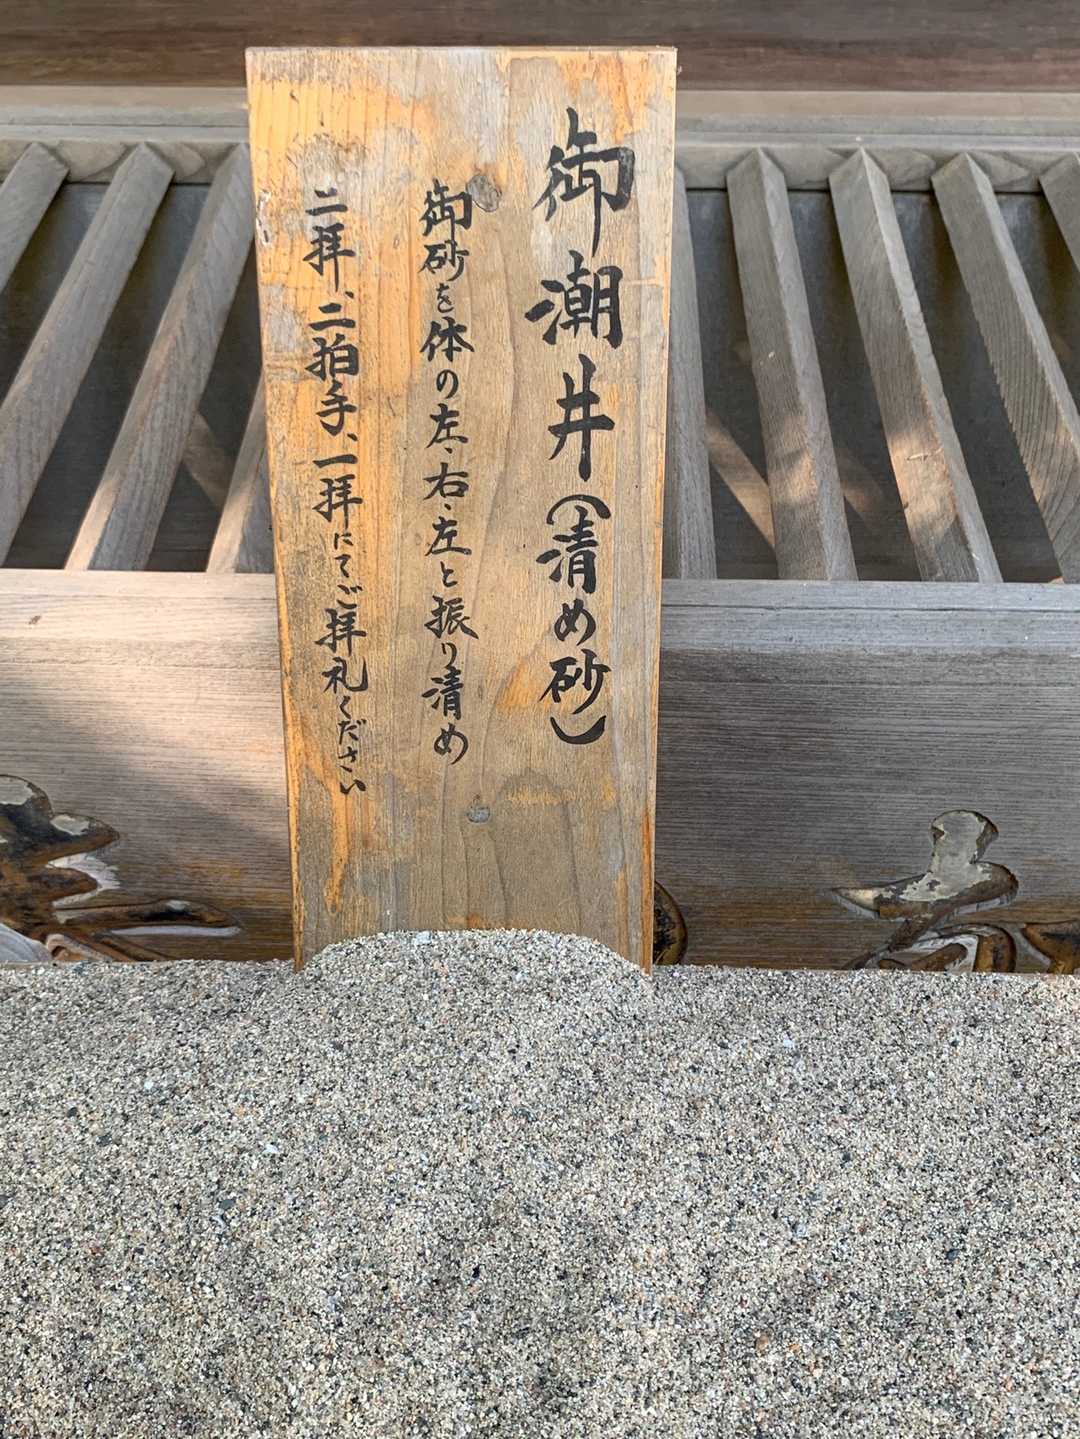 御潮井(清め砂)
御砂を体の左、右、左と振り清め
二拝、二拍手、一拝にてご拝礼ください